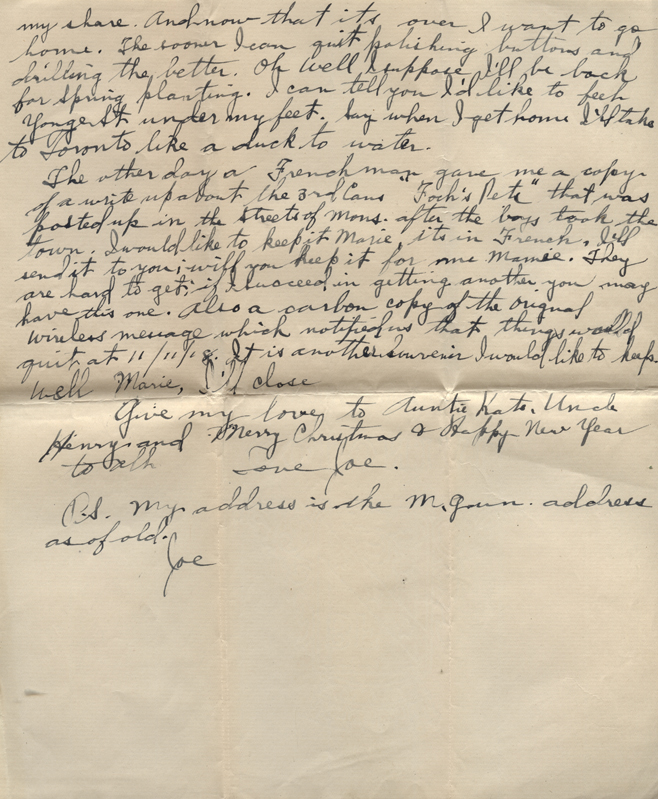 my share. And now that its over I want to go
home. The sooner I can quit polishing buttons and
drilling the better. Oh well I suppose I'll be back
for spring planting. I can tell you I'd like to feel
Yonge St under my feet. Say when I get home I'll take
to Toronto like a duck to water.
The other day a Frenchman gave me a copy
of a write up about the 3rd Cans "Foch's Pets" that was
posted up in the streets of Mons. after the boys took the
town. I would like to keep it Marie, its in French, I'll
send it to you; will you keep it for me Mamie. They
are hard to get; if I succeed in getting another you may
have this one. Also a carbon copy of the orignal
wireless message which notified us that things would
quit at 11/11/18. It is another souvenir I would like to keep.
Well Marie, I'll close
Give my love to Auntie Kate, Uncle
Henry and Merry Christmas & Happy New Year
to all Love Joe.
P.S. My address is the M. Gun. address
as of old.
Joe